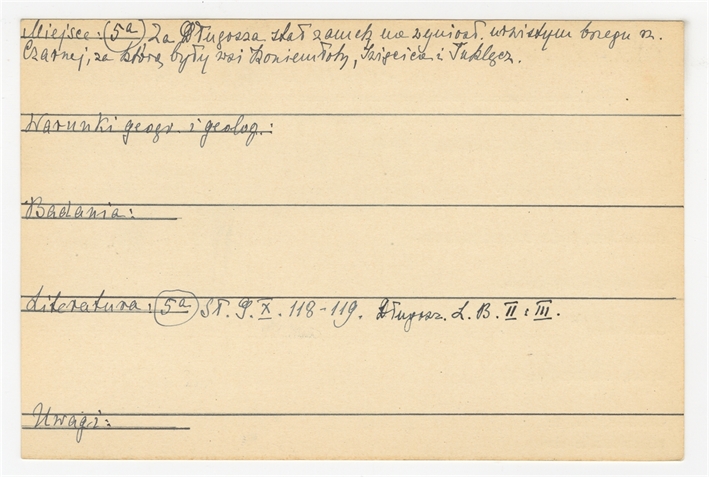 Miejsce: (5a) Za Długosza stał zamek na wyniosł. urwistym brzegu rz.
Czarnej, za którą były wsi Koniemłoty, Szięcica i Tuklęcz.
Warunki geogr. i geolog.:
Badania:
Literatura: (5a) Sł. G. X. 118-119. Długosz. L. B. II i III.
Uwagi: